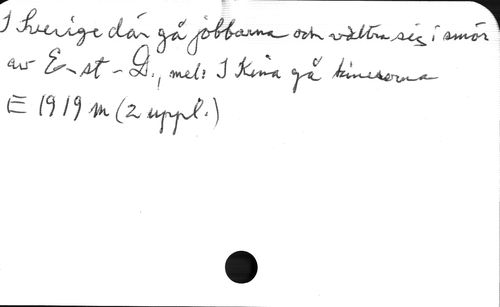 I Sverige där gå jobbarna och vältra sig i smör
av E-st-D., mel: I Kina gå kineserna
E 1919 m (2 uppl.)